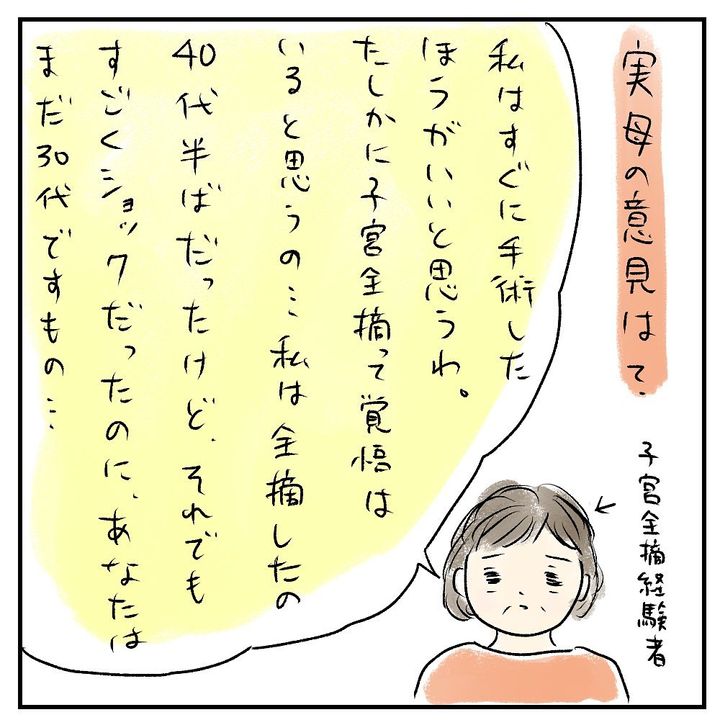 実母の意見は、
私はすぐに手術した
ほうがいいと思うわ。
たしかに子宮全摘って覚悟は
いると思うの… 私は全摘したの
40代半ばだったけど、それでも
すごくショックだったのに、あなたは
まだ30代ですもの…
子宮全摘経験者